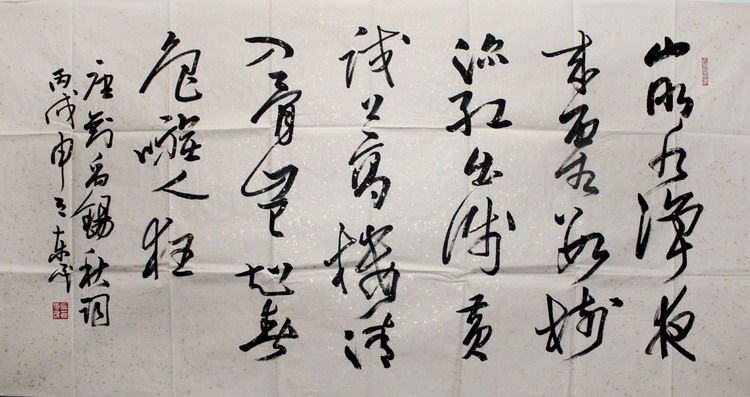 山明水净夜
来霜数树
深红出浅黄
试上高楼清
入骨岂如春
色嗾人狂
唐刘禹锡秋词
丙戌申之